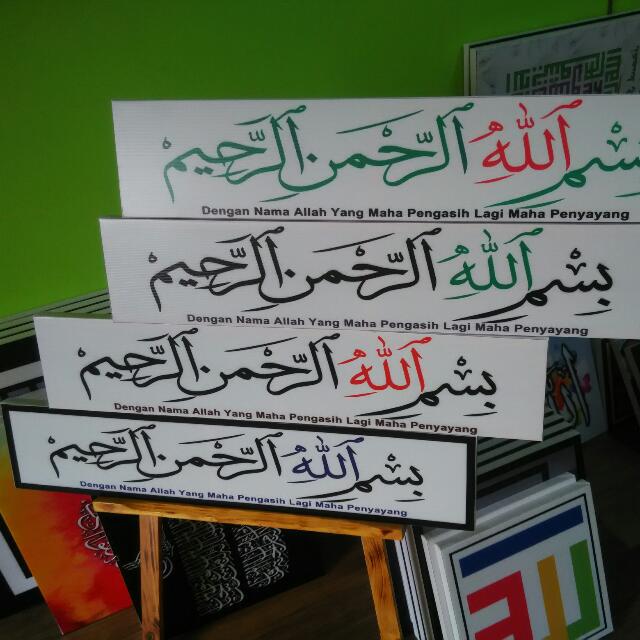 بسم الله الرحمن الرحيم
Dengan Nama Allah Yang Maha Pengasih Lagi Maha Penyayang
بِسْمِ اللهِ الرَّحْمنِ الرَّحِيمِ
Dengan Nama Allah Yang Maha Pengasih Lagi Maha Penyayang
بِسْمِ اللهِ الرَّحْمنِ الرَّحِيمِ
Dengan Nama Allah Yang Maha Pengasih Lagi Maha Penyayang
بِسْمِ اللهِ الرَّحْمنِ الرَّحِيمِ
Dengan Nama Allah Yang Maha Pengasih Lagi Maha Penyayang